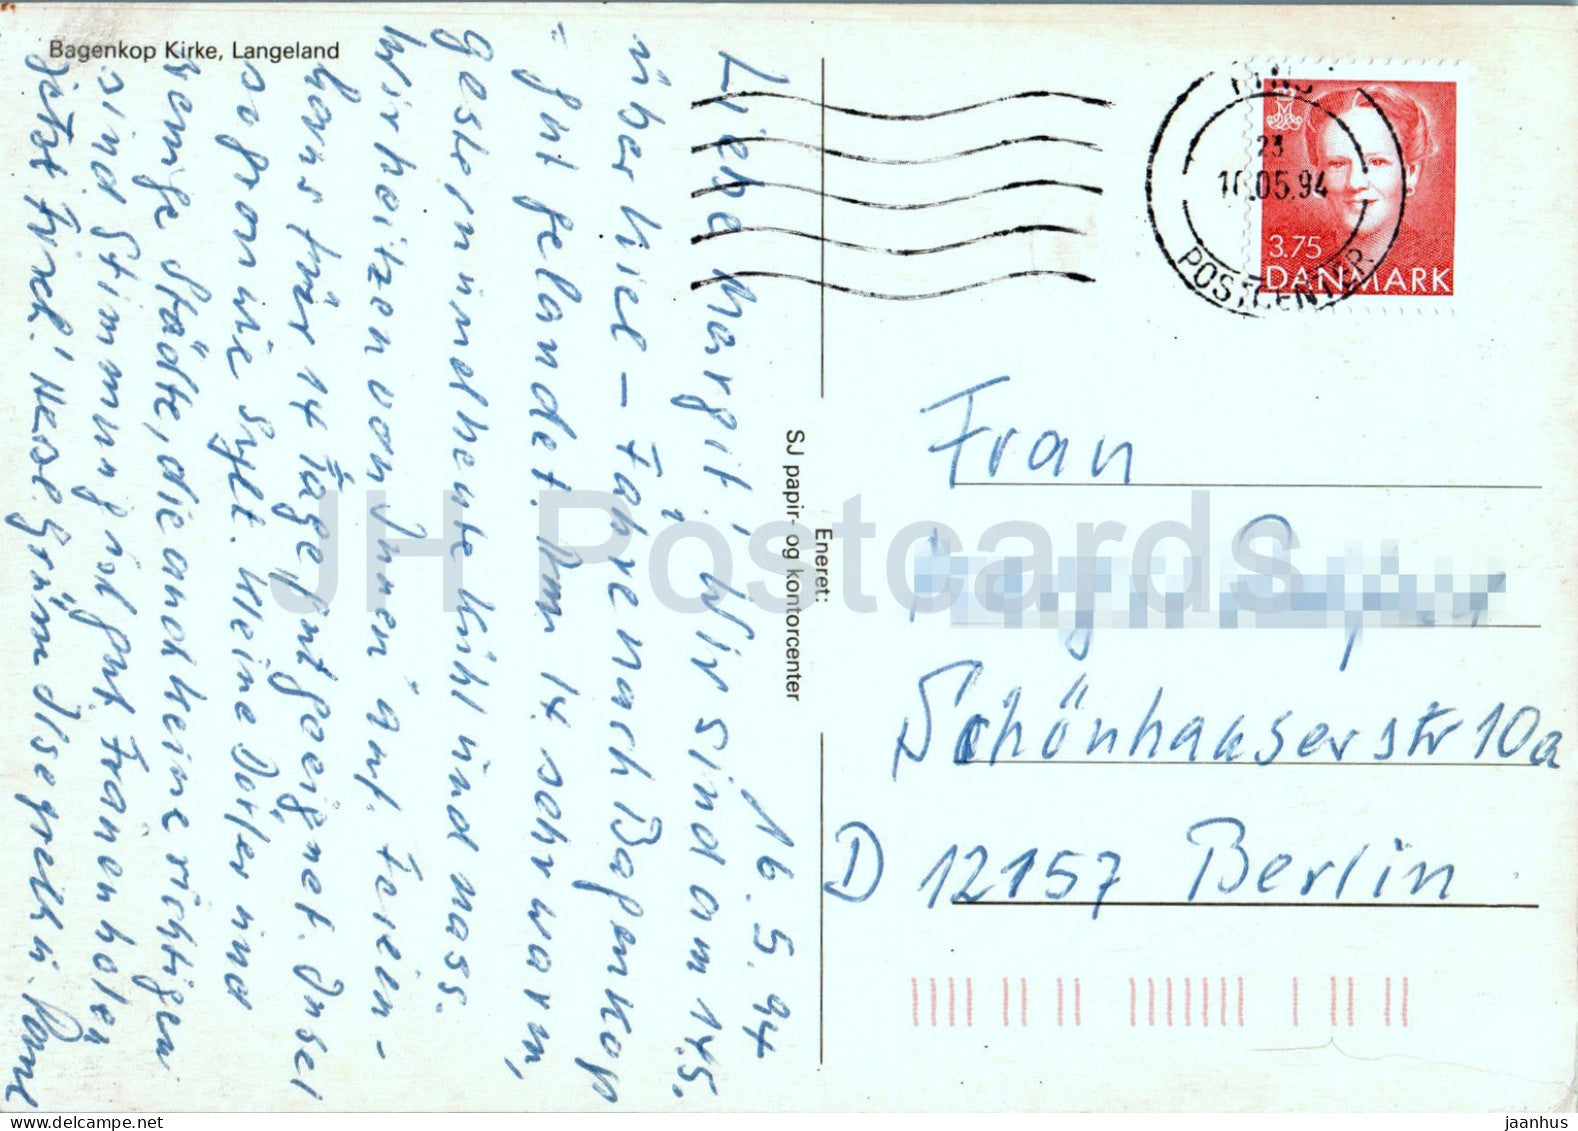 Bagenkop Kirke, Langeland
16.5.94
Liebe Margit! Wir sind am 14.5.
über Kiel – Fähre nach Bagenkop
gut gelandet. Am 14. sehr warm,
gestern und heute kühl und nass.
Wir heitzen von Innen auf. Ferein-
haus für 14 Tage gut geeignet. Insel
so gross wie Sylt. Kleine Dörfer und
wenige Städte, die auch keine richtigen
sind. Stimmung ist gut. Frauen holen
jetzt Fisch! Herzl. Grüsse Ilse
SJ papir- og kontorcenter
Eneret:
23
05.94
POSTCENTER
3.75
DANMARK
Frau
Schönhauserstr 10a
D 12157 Berlin
JH Postcards
jaanhus
delcampe.net